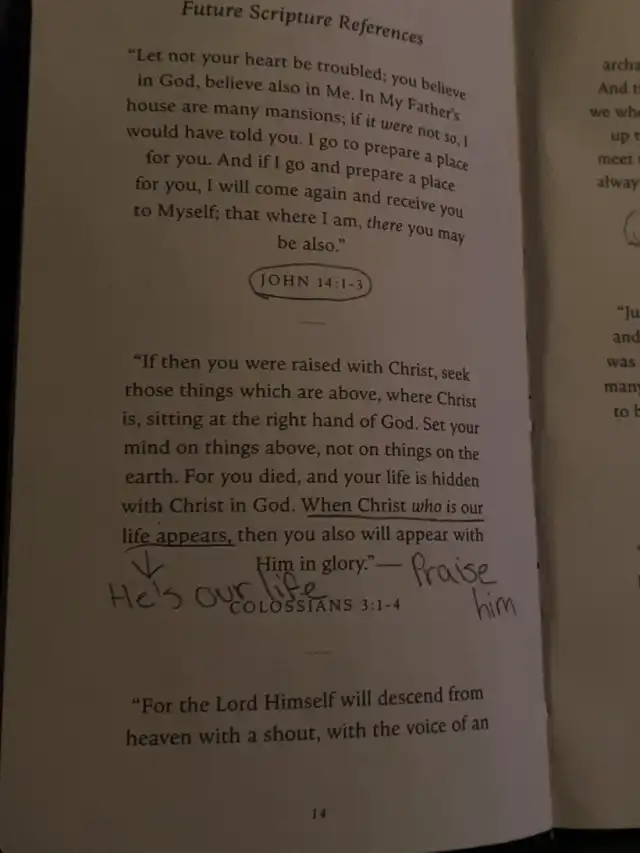 Future Scripture References
“Let not your heart be troubled; you believe
in God, believe also in Me. In My Father's
house are many mansions; if it were not so, I
would have told you. I go to prepare a place
for you. And if I go and prepare a place
for you, I will come again and receive you
to Myself; that where I am, there you may
be also.”
JOHN 14:1-3
“If then you were raised with Christ, seek
those things which are above, where Christ
is, sitting at the right hand of God. Set your
mind on things above, not on things on the
earth. For you died, and your life is hidden
with Christ in God. When Christ who is our
life appears, then you also will appear with
Him in glory.”— Praise
him
He's our life
COLOSSIANS 3:1-4
“For the Lord Himself will descend from
heaven with a shout, with the voice of an
14
And
we
up
meet
“Ju
and
was
many
to